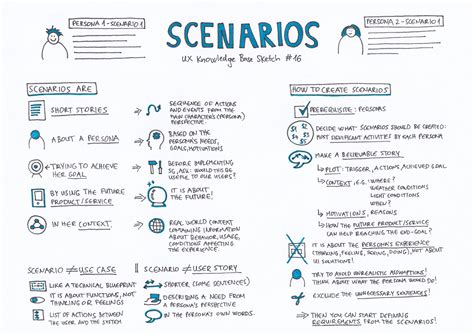 PERSONA 1 - SCENARIO 1
SCENARIOS
UX Knowledge Base Sketch #16
PERSONA 2 - SCENARIO 1
SCENARIOS ARE
SHORT STORIES
SEQUENCE OF ACTIONS
AND EVENTS FROM THE
MAIN CHARACTER'S (PERSONA)
PERSPECTIVE.
ABOUT A PERSONA
BASED ON THE
PERSONA'S NEEDS,
GOALS, MOTIVATIONS
TRYING TO ACHIEVE
HER GOAL
BEFORE IMPLEMENTING
ASK: WOULD THIS BE
USEFUL TO OUR USERS?
BY USING THE FUTURE
PRODUCT/SERVICE
IT IS ABOUT
THE FUTURE!
IN HER CONTEXT
REAL WORLD CONTEXT
CONTAINING INFORMATION
ABOUT BEHAVIOR, USAGE,
CONDITIONS AFFECTING
THE EXPERIENCE.
SCENARIO ≠ USE CASE
LIKE A TECHNICAL BLUEPRINT
IT IS ABOUT FUNCTIONS, NOT
THINKING OR FEELINGS
LIST OF ACTIONS BETWEEN
THE USER AND THE SYSTEM
SCENARIO ≠ USER STORY
SHORTER (SOME SENTENCES)
DESCRIBING A NEED FROM
A PERSONA'S PERSPECTIVE
IN THE PERSONA'S OWN WORDS.
HOW TO CREATE SCENARIOS
PREREQUISITE: PERSONAS
S1 S2
S3
DECIDE WHAT SCENARIOS SHOULD BE CREATED:
MOST SIGNIFICANT ACTIVITIES BY EACH PERSONA
MAKE A BELIEVABLE STORY
PLOT: TRIGGER, ACTIONS, ACHIEVED GOAL
CONTEXT, E.G.: WHERE?
WEATHER CONDITIONS
LIGHT CONDITIONS
WHEN?
MOTIVATIONS, REASONS
HOW THE FUTURE PRODUCT/SERVICE
CAN HELP REACHING THE END-GOAL?
IT IS ABOUT THE PERSONA'S EXPERIENCE
(THINKING, FEELING, SEEING, DOING), NOT ABOUT
UI SOLUTIONS!
TRY TO AVOID UNREALISTIC ASSUMPTIONS!
WHAT WOULD THE PERSONA REALLY DO?
EXCLUDE THE UNNECESSARY SENTENCES!
THEN YOU CAN START DEFINING
REQUIREMENTS BASED ON IT!